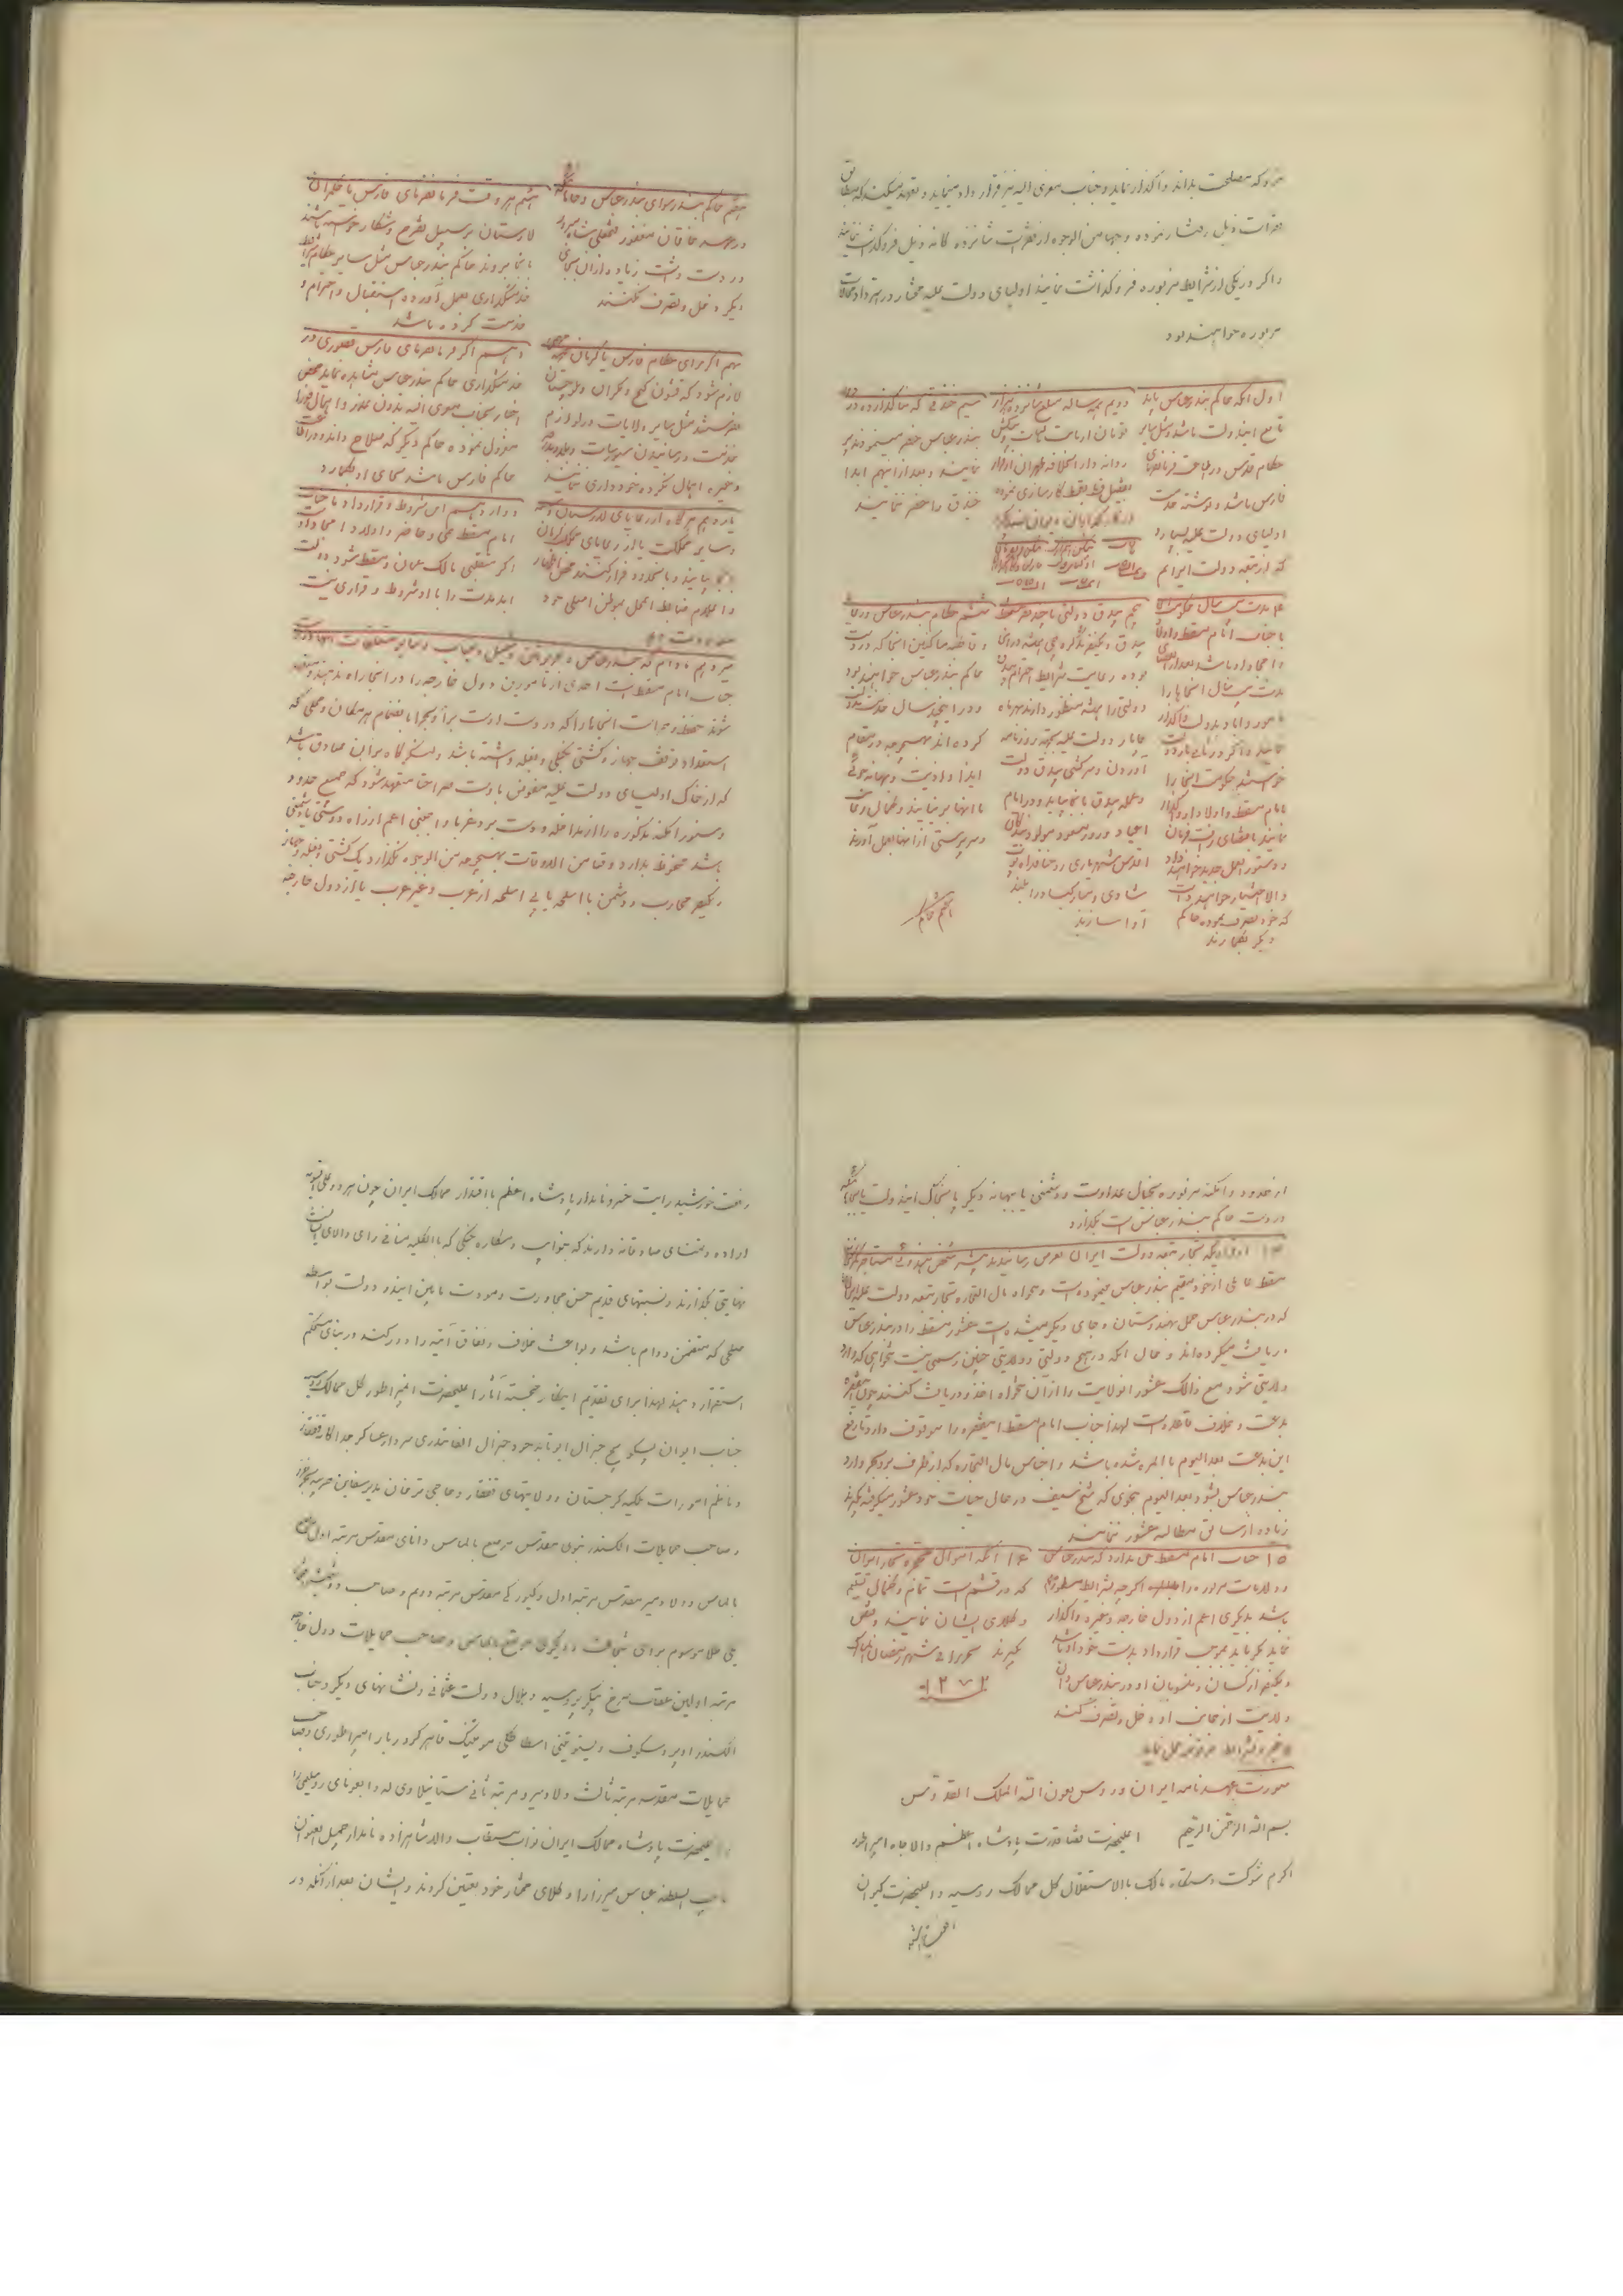 هرکه مصلحت بداند واگذار نماید و جناب معزی الیه نیز قرارداد مینماید و تعهد میکند که مطابق
فقرات ذیل رفتار نموده و بهیچ من الوجوه از فقرات شانزده گانه ذیل فروگذاشت ننمایند
و اگر در یکی از شرایط مزبوره فروگذاشت نمایند اولیای دولت علیه مختار در استرداد محالات
مزبوره خواهند بود
اول آنکه حاکم بندرعباس باید
تابع این دولت باشد و مثل سایر
حکام فارس در اطاعت فرمانفرمای
فارس باشد و نوشته بخدمت
اولیای دولت علیه بسپارد
که از تبعه دولت ایرانم
دویم همه ساله مبلغ شانزده هزار
تومان از بابت مالیات و پیشکش
روانه دارالخلافه طهران از قرار
تفصیل قسط بقسط کارسازی نموده
سیم خندقی که بنا گذارده در دور
بندرعباس حفر مینمودند پر
نمایند و بعد از این هم ابدا
خندق را حفر ننمایند
۴ مدت بیست سال حکومت آنجا
با جناب امام مسقط و اولاد
و امجاد او باشد بعد از انقضای
مدت بیست سال آنجاها را
معمور و آباد بدولت واگذار
خواستند حکومت آنجا را
بامام مسقط و اولاد او واگذار
نمایند بامضای رقم و فرمان
و دستورالعمل جدید خواهند داد
والا اختیار خواهند داشت
که خود تصرف نموده حاکم
دیگر بگمارند
پنجم بیدق دولتی با چند نفر مستحفظ
بیدق و یکنفر تذکره چی همیشه در آنجا
بوده رعایت شرایط احترام بیدق
دولتی را همیشه منظور دارند هر ماه
چاپار دولت علیه بجهة روزنامه
آوردن و سرکشی بیدق دولت
و عمله بیدق بآنجا بیاید و در ایام
اعیاد و روز مسعود مولود بندگان
اقدس شهریاری روحنا فداه توپ
شادی و مبارکباد را بلند
آوا سازند
ششم حکام بندرعباس و رعایا
و قاطبه ساکنین آنجا که در دست
حاکم بندرعباس خواهند بود
و در این چند سال خدمت بدولت
کرده‌اند بهیچوجه در مقام
ایذا و اذیت و بهانه جوئی
با آنها بر نیایند و کمال رعایت
و سرپرستی از آنها بعمل آورند
هفتم حاکم
هفتم حاکم بندر سوای بندرعباس و جاهائیکه
در عهد خاقان مغفور فتحعلی شاه مبرور
در دست داشت زیاده از آن بجای
دیگر دخل و تصرف نکنند
هشتم هر وقت فرمانفرمای فارس یا حکمران
لارستان بر سبیل تفرج و شکار خواسته باشند
بآنجا بروند حاکم بندرعباس مثل سایر حکام شرایط
خدمتگذاری بعمل آورده استقبال و احترام و
خدمت کرده باشد
نهم اگر برای حکام فارس یا کرمان
لازم شود که قشون کیج و مکران و بلوچستان
بفرستند مثل سایر ولایات در لوازم
خدمت و رسانیدن سیورسات و بلد و
و غیره اهمال نکرده خودداری ننمایند
دهم اگر فرمانفرمای فارس قصوری در
خدمتگذاری حاکم بندرعباس مشاهده نماید بمحض
اخبار بجناب معزی الیه بدون عذر و اهمال فورا
معزول نموده حاکم دیگر که صلاح داند و در اطاعت
حاکم فارس باشد بجای او بگمارد
یازدهم هرگاه از رعایای لارستان و
و سایر مملکت یا از رعایای ممالک کرمان
بیایند و باینحدود فرار کنند بمحض اظهار
و اعلام ضابط آنمحل بموطن اصلی خود
معاودت دهد
دوازدهم این شروط و قرارداد با جناب
امام مسقط حی و حاضر و اولاد و امجاد اوست
اگر متغلبی مالک عمان و مسقط شود دولت
ابد مدت را با او شروط و قراری نیست
سیزدهم مادام که بندرعباس و جزیرتین قشم و هرمز و سایر متعلقات آنها در دست
جناب امام مسقط است احدی از مامورین دول خارجه را در آنجا راه ندهند و متعهد
شوند بحفظ و حراست آنجاها را که در دست اوست برا و بحرا بانضمام هر مکان و محلی که
استعداد توقف جهاز و کشتی بحکمی و بغله داشته باشد و لنگرگاه بر آن صادق باشد
که از خاک اولیای دولت علیه مفوض باوست صراحتا متعهد شود که جمیع حدود
و سنور امکنه مذکوره را از مداخله دوست بر و غریبا و اجنبی اعم از راه دوستی یا دشمنی
باشد محفوظ بدارد و وقتا من الاوقات بهیچوجه من الوجوه نگذارد یک کشتی و بغله و جهاز
و یکنفر محارب و دشمن با اسلحه یا بی اسلحه از عرب و غیر عرب یا از دول خارجه
از حدود و امکنه مزبوره بخیال عداوت و دشمنی یا ببهانه دیگر پا بخاک این دولت یا بجائیکه
در دست حاکم بندرعباس است بگذارد
۱۴ از قراریکه تجار تبعه دولت ایران بعرض رسانیدند همیشه شخص هندوئی مستاجر گمرک
مسقط عاملی از خود مقیم بندرعباس مینموده است و همراه مال التجاره تجار تبعه دولت علیه ایران
که در بندرعباس حمل بهندوستان و جای دیگر میشده است عشور مسقط را در بندرعباس
دریافت میکرده‌اند و حال آنکه در هیچ دولتی و ولایتی چنین رسمی نیست تنخواهی که وارد
ولایتی نشود مع ذالک عشور آنولایت را از آن تنخواه اخذ و دریافت کنند چون اینفقره
بدعت و بخلاف قاعده است لهذا جناب امام مسقط اینفقره را موقوف دارد تا رفع
این بدعت بعد الیوم بالمره شده باشد و اجناس مال التجاره که از طرف بر و بحر وارد
بندرعباس بشود بعد الیوم بنحوی که شیخ سیف در حال حیات خود عشور میگرفته بگیرند
زیاده از سابق مطالبه عشور ننمایند
۱۵ جناب امام مسقط حق ندارد که بندرعباس
و ولایات مزبوره را اگرچه بشرایط مسطوره
باشد بدیگری اعم از دول خارجه و غیره واگذار
نماید مگر باید بموجب قرارداد بدست خود او باشد
و یکنفر از کسان و منسوبان او در بندرعباس و آن
ولایت از جانب او دخل و تصرف کند
۱۶ آنکه اموال تجار ایران
که در قشم است تمام و کمال تسلیم
وکلای ایشان نمایند و قبض
بگیرند تحریرا فی شهر رمضان المبارک
۱۲۷۲
صورت عهدنامه ایران و روس بعون الله الملک القدوس
بسم الله الرحمن الرحیم اعلیحضرت قضا قدرت پادشاه اعظم والاجاه امپراطور
اکرم شوکت دستگاه مالک بالاستقلال کل ممالک روسیه و اعلیحضرت کیوان
رفعت خورشید رایت خسرو نامدار پادشاه اعظم با اقتدار ممالک ایران چون هر دو علی السویه
اراده و تمنای صادقانه دارند که بنوایب و مکاره جنگی که بالکلیه منافی رای والای ایشانست
نهایتی بگذارند و نسبتهای قدیم حسن مجاورت و مودت مابین این دو دولت بواسطه
صلحی که متضمن دوام باشد و بواعث خلاف و نفاق آتیه را دور کند در بنای مستحکم
استقرار دهند لهذا برای تقدیم اینکار خجسته آثار اعلیحضرت امپراطور کل ممالک روسیه
جناب ایوان پسکویچ جنرال انفانتری سردار عساکر جداگانه قفقاز
و ناظم امورات ملکیه گرجستان و ولایتهای قفقاز و حاجی ترخان مدیر سفاین حربیه بحر خزر
و صاحب حمایلات الکسندر نیوی مقدس مرصع بالماس و انای مقدس مرتبه اول مرصع
بالماس و ولادیمیر مقدس مرتبه اول و گیورگی مقدس مرتبه دویم و صاحب دو شمشیر افتخار
یکی طلا موسوم برای شجاعت و دیگری مرصع بالماس و صاحب حمایلات دول خارجه
مرتبه اولین عقاب سرخ پیکر پروسیه و هلال دولت عثمانی و نشانهای دیگر و جناب
الکسندر اوبروسکوف
حمایلات مقدسه مرتبه ثالث ولادیمیر و مرتبه ثانی ستانیسلاوی
اعلیحضرت پادشاه ممالک ایران نواب مستطاب والا شاهزاده نامدار
نایب السلطنه عباس میرزا را وکلای مختار خود تعیین کردند و ایشان بعد از آنکه در